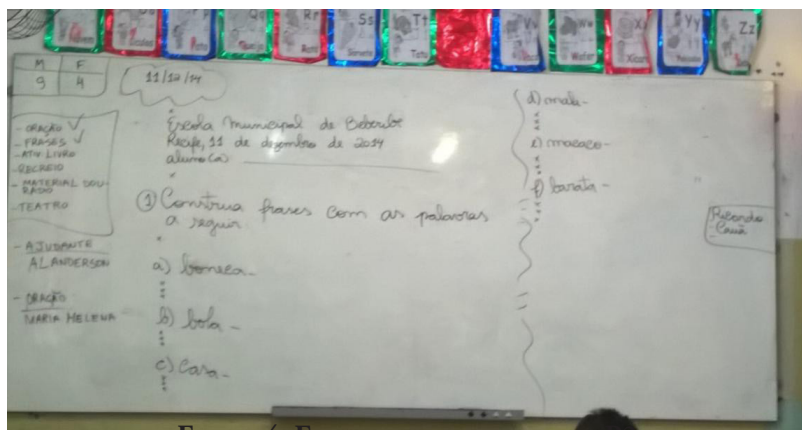 Ss
Tt
Sorvete
Tatu
Ww
Xx
Yy
Zz
M F
9 4
11/12/14
- ORAÇÃO ✓
- FRASES ✓
- ATIV. LIVRO
- RECREIO
- MATERIAL DOU-
RADO
- TEATRO
- AJUDANTE
ALANDERSON
- ORAÇÃO
MARIA HELENA
Escola Municipal de Beberibe
Recife, 11 de dezembro de 2014
aluno(a)
① Construa frases com as palavras
a seguir.
a) boneca-
b) bola-
c) casa-
d) mala-
e) macaco-
f) barata-
Ricardo
Cauã